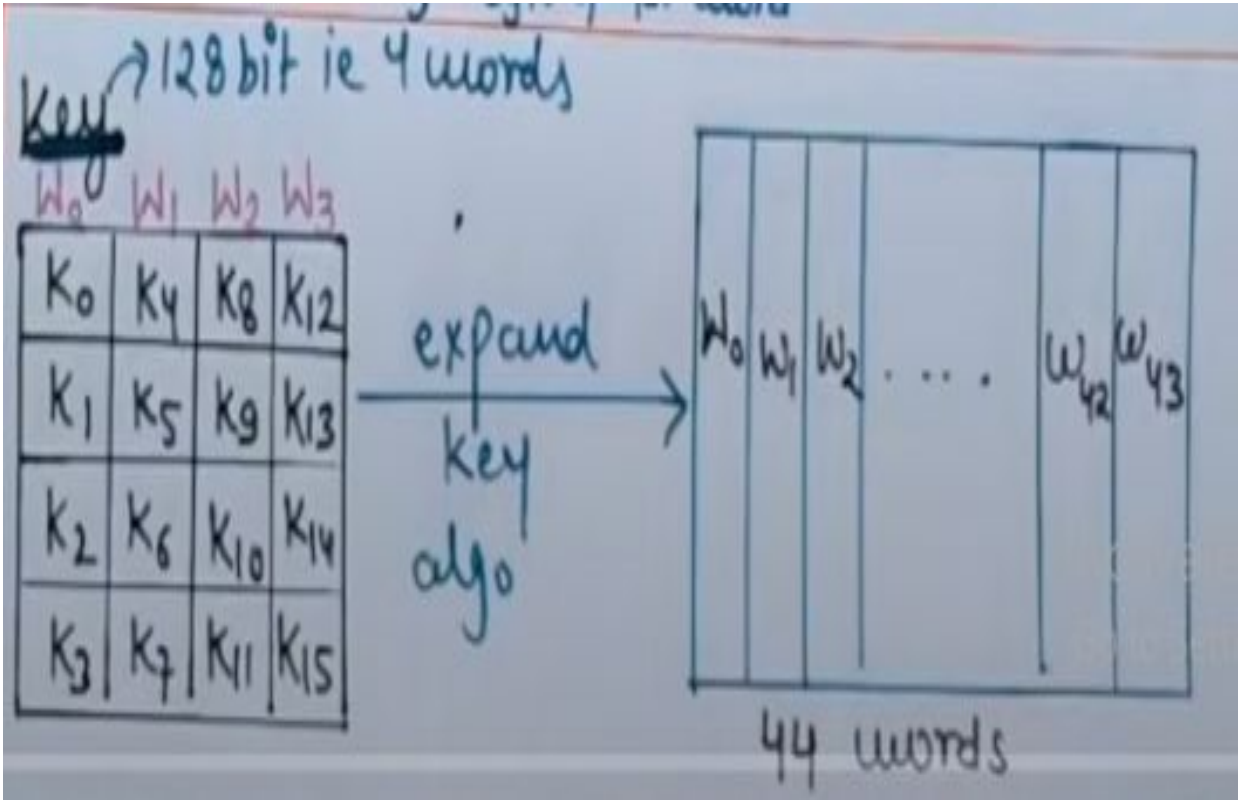 128 bit ie 4 words
Key
W0 W1 W2 W3
K0 K4 K8 K12
K1 K5 K9 K13
K2 K6 K10 K14
K3 K7 K11 K15
expand
key
algo
W0 W1 W2 .... W42 W43
44 words